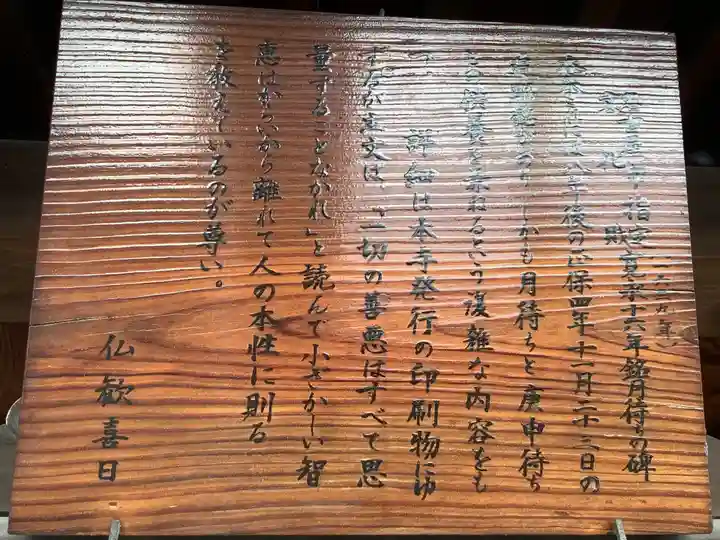 指定寛永十六年銘月待の碑
(一六三九年)
文化財
八年後の正保四年十一月二十三日の
銘があり しかも月待ちと庚申待ち
との供養を兼ねるという複雑な内容をも
つ。 詳細は本寺発行の印刷物にゆ
ずるが主文は、「一切の善悪はすべて思
量することなかれ」と読んで小ざかしい智
恵はからいから離れて人の本性に則る
を教えているのが尊い。
仏歓喜日